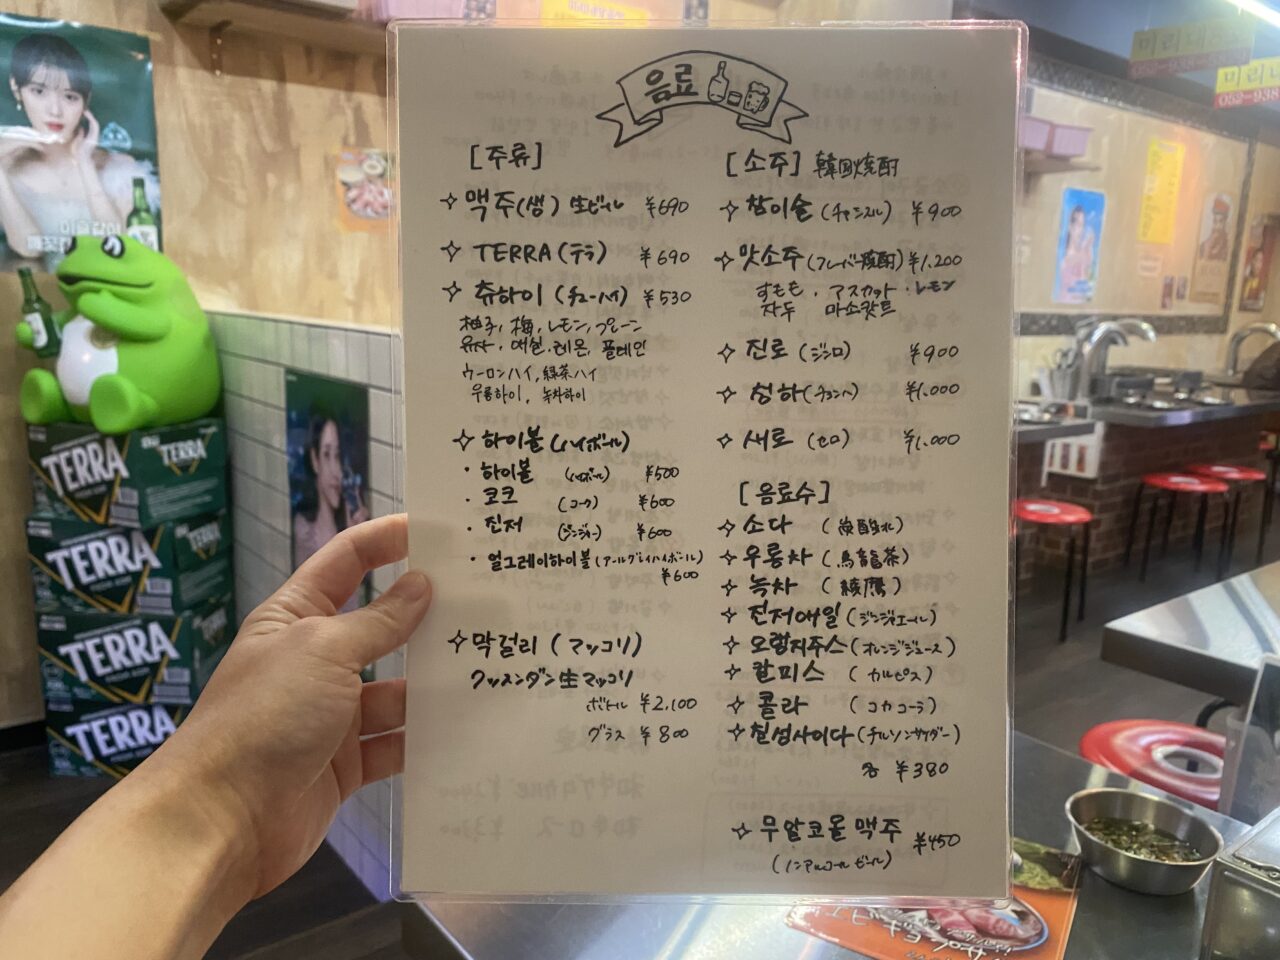 음료
[주류]
✧ 맥주(생) 生ビール ¥690
✧ TERRA (テラ) ¥690
✧ 츄하이 (チューハイ) ¥530
柚子, 梅, レモン, プレーン
유자, 매실, 레몬, 플레인
ウーロンハイ, 緑茶ハイ
우롱하이, 녹차하이
✧ 하이볼 (ハイボール)
・하이볼 (ハイボール) ¥500
・코크 (コーク) ¥600
・진저 (ジンジャー) ¥600
・얼그레이하이볼 (アールグレイハイボール)
¥600
✧ 막걸리 (マッコリ)
クッスンダン生マッコリ
ボトル ¥2,100
グラス ¥800
[소주] 韓国焼酎
✧ 참이슬 (チャミスル) ¥900
✧ 맛소주 (フレーバー焼酎) ¥1,200
すもも・マスカット・レモン
자두 마스캇트
✧ 진로 (ジンロ) ¥900
✧ 청하 (チョンハ) ¥1,000
✧ 새로 (セロ) ¥1,000
[음료수]
✧ 소다 (炭酸水)
✧ 우롱차 (烏龍茶)
✧ 녹차 (綾鷹)
✧ 진저에일 (ジンジャエール)
✧ 오렌지주스 (オレンジジュース)
✧ 칼피스 (カルピス)
✧ 콜라 (コカコーラ)
✧ 칠성사이다 (チルソンサイダー)
各 ¥380
✧ 무알코올 맥주 ¥450
(ノンアルコールビール)
이슬같이
깨끗
TERRA
TERRA
TERRA
TERRA
TERRA
미리내
미리내
052-938